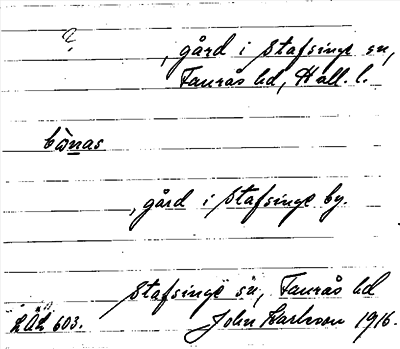 ?
, gård i Stafsinge sn,
Faurås hd, Hall. l.
bònas
, gård i Stafsinge by.
Stafsinge sn, Faurås hd
LUL 603.
John Karlsson 1916.